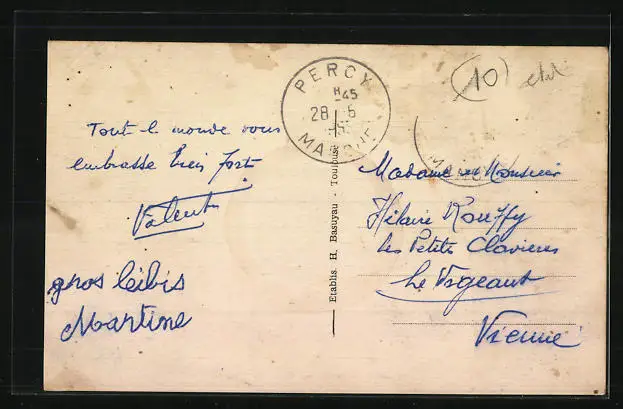 PERCY
H45
28 5
MANCHE
(10)
MANCHE
Tout le monde vous
embrasse bien fort
Valent
gros bibis
Martine
Etablis. H. Basuyau - Toulouse
Madame et Monsieur
Hilaire Rouffy
Les Petites Clavieres
Le Vigeant
Vienne